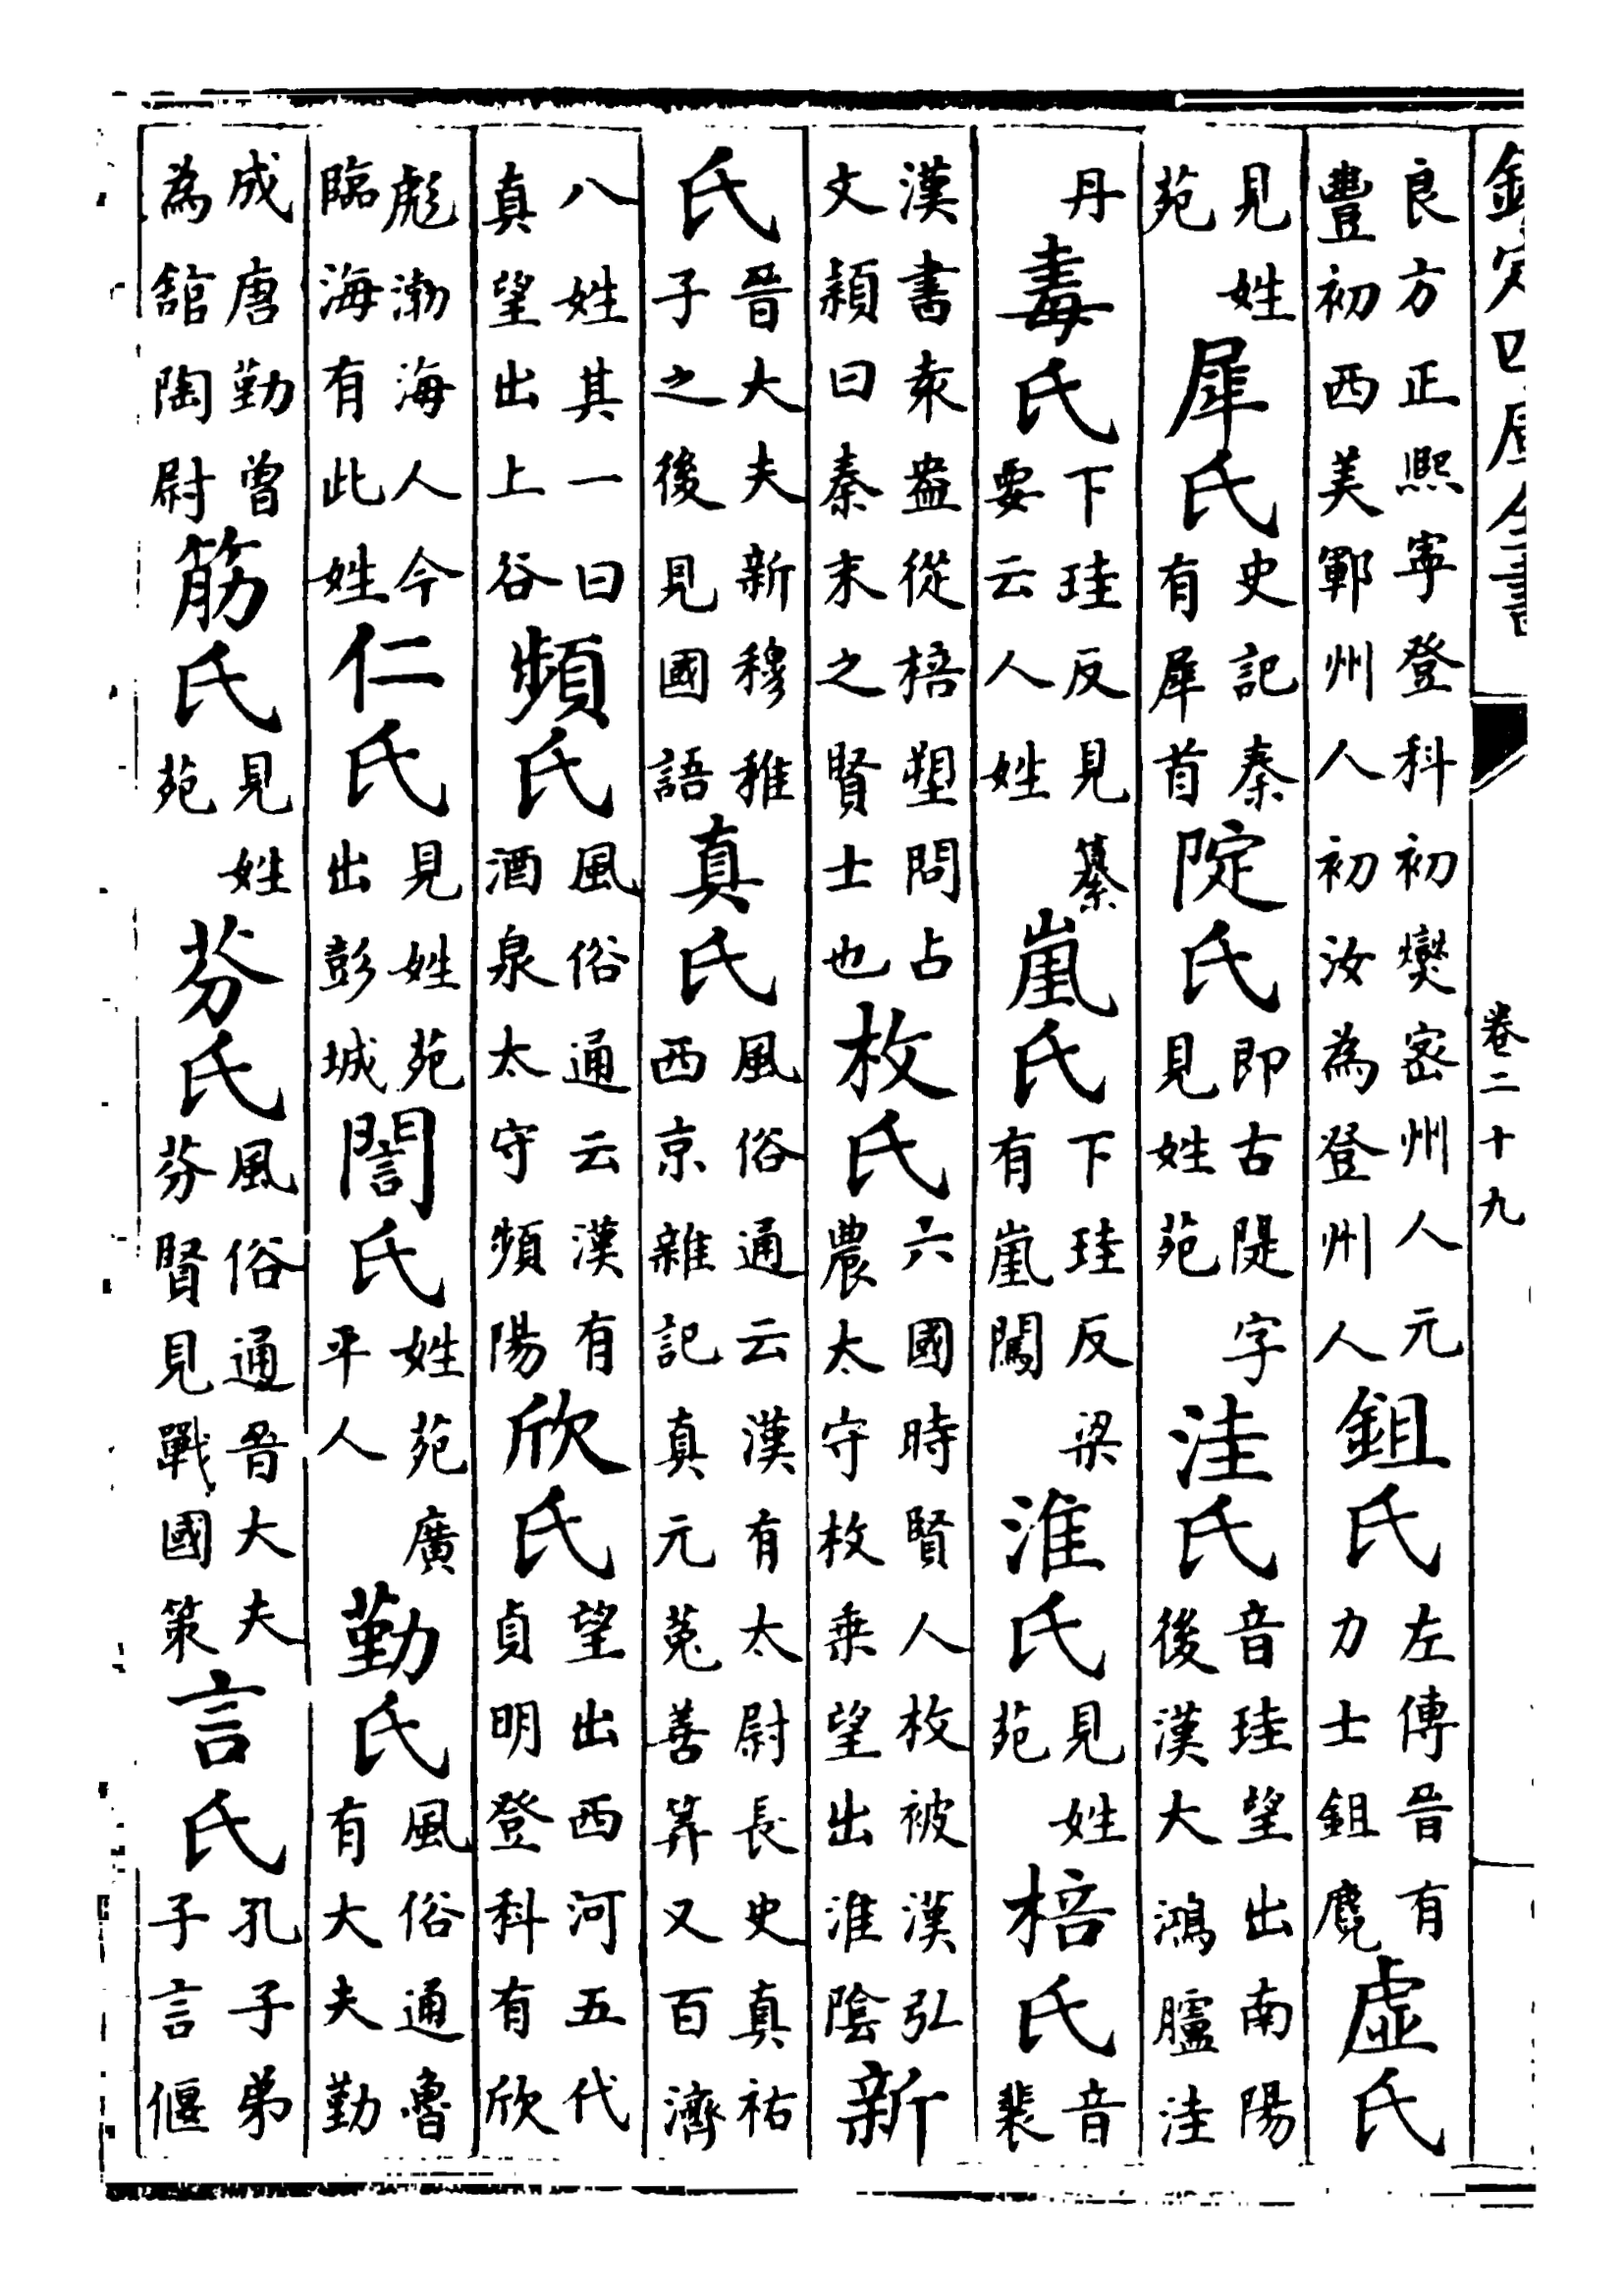 欽定四庫全書 卷二十九
良方正熙寧登科初爕宻州人元豐初西美鄆州人初汝為登州人鉏氏左傳晉有力士鉏麑虛氏
見姓苑犀氏史記秦有犀首氏即古隄字見姓苑洼氏音珪望出南陽後漢大鴻臚洼
丹毒氏下珪反見纂要云人姓氏下珪反梁有闖淮氏見姓苑棓氏音裴
漢書袁盎從棓塑問占文頴曰秦末之賢士也枚氏六國時賢人枚被漢弘農太守枚乗望出淮隂新
氏晉大夫新穆稚子之後見國語真氏風俗通云漢有太尉長史真祐西京雜記真元菟善筭又百濟
八姓其一曰真望出上谷頻氏風俗通云漢有酒泉太守頻陽欣氏望出西河五代貞明登科有欣
彪渤海人今臨海有此姓仁氏見姓苑出彭城誾氏姓苑廣平人勤氏風俗通魯有大夫勤
成唐勤曽為舘陶尉筋氏見姓苑芬氏風俗通晉大夫芬賢見戰國策言氏孔子弟子言偃